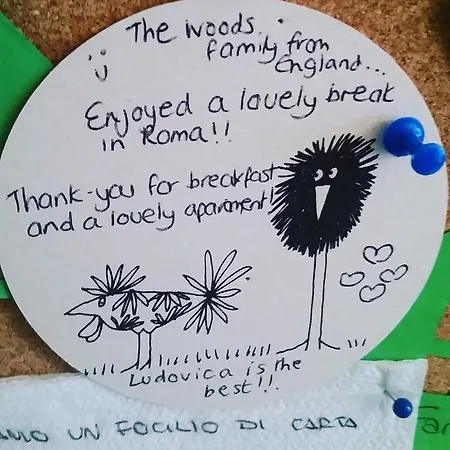 The Woods
family from
England...
Enjoyed a lovely break
in Roma!!
Thank-you for breakfast
and a lovely aparment!
Ludovica is the
best!!
AMO UN FOGLIO DI CARTA